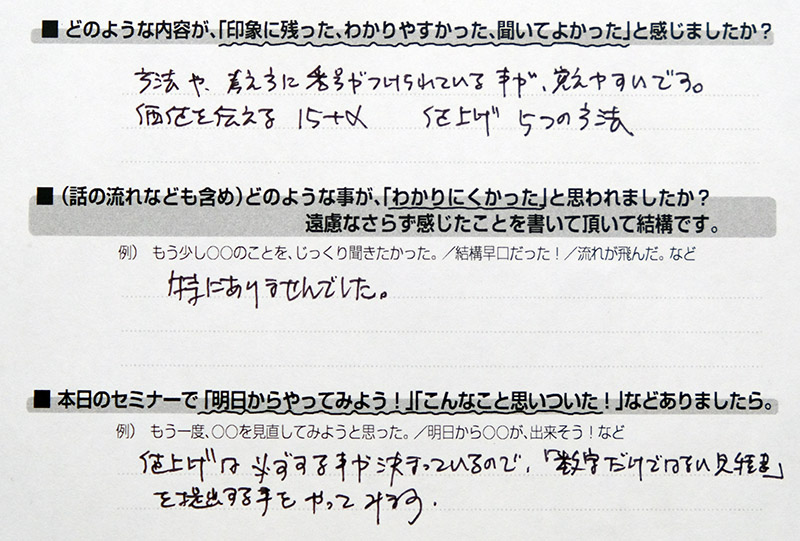 ■ どのような内容が、「印象に残った、わかりやすかった、聞いてよかった」と感じましたか？
方法や、考え方に番号がつけられている事が、覚えやすいです。
価値を伝える 15+α 値上げ 5つの方法
■ （話の流れなども含め）どのような事が、「わかりにくかった」と思われましたか？
遠慮なさらず感じたことを書いて頂いて結構です。
例） もう少し○○のことを、じっくり聞きたかった。／結構早口だった！／流れが飛んだ。など
特にありませんでした。
■ 本日のセミナーで「明日からやってみよう！」「こんなこと思いついた！」などありましたら。
例） もう一度、○○を見直してみようと思った。／明日から○○が、出来そう！など
値上げは必ずする事が決まっているので、「数字だけではない見積書」
を提出する事をやってみます。